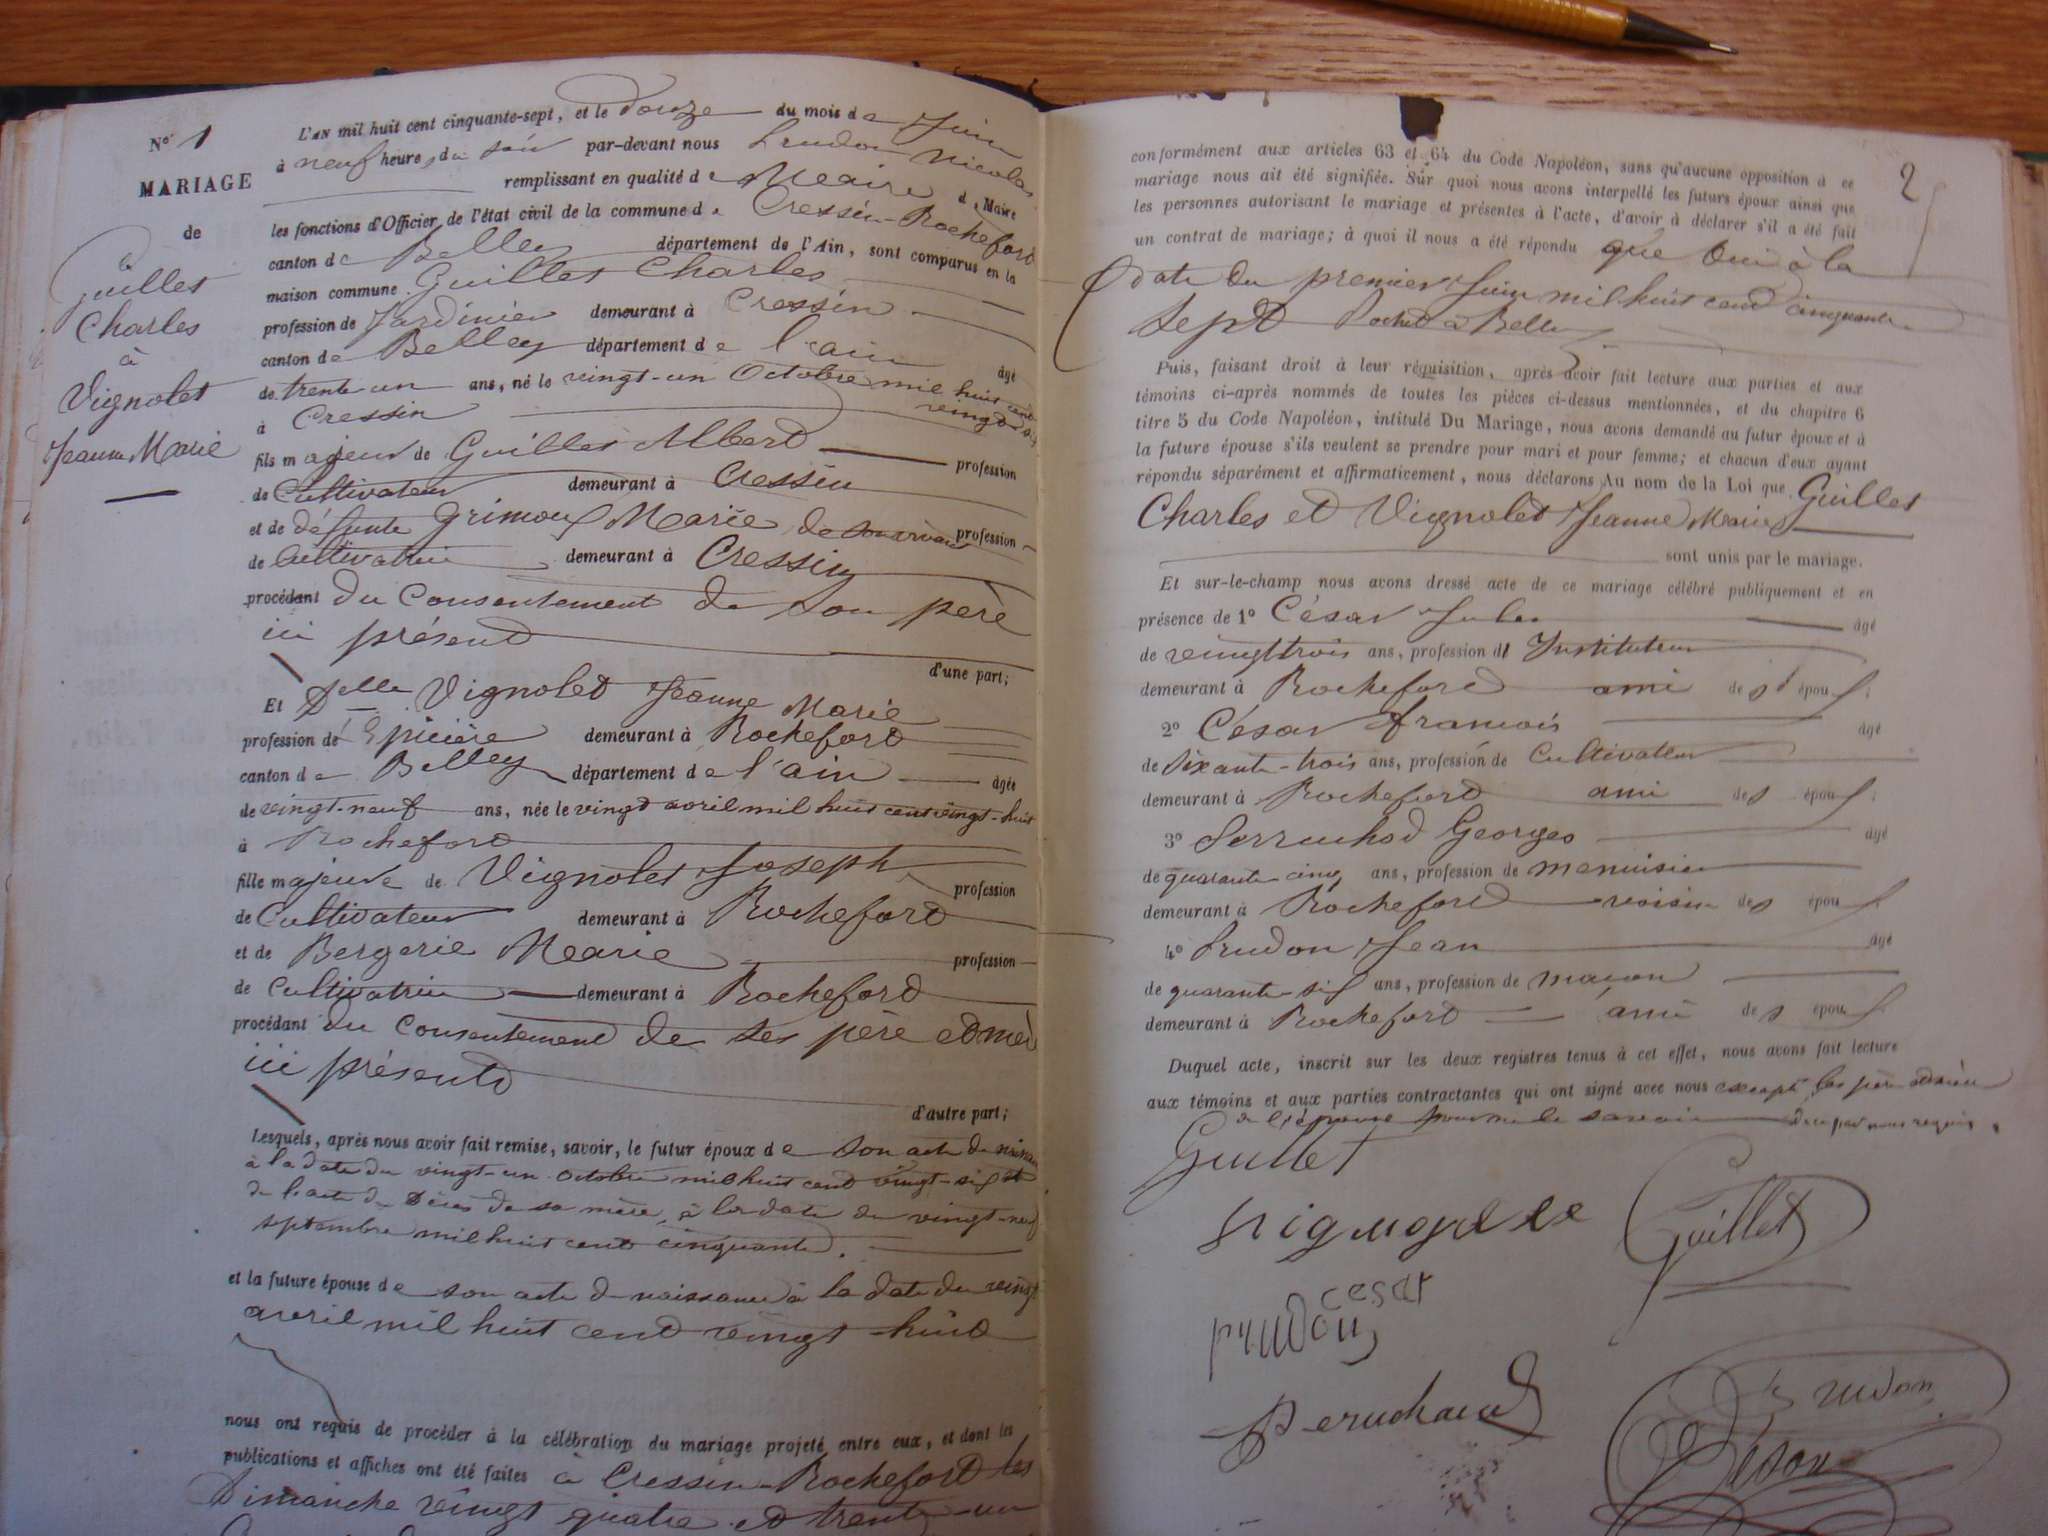 No 1
MARIAGE
de
Guillet
Charles
à
Vignolet
Jeanne Marie
L'AN mil huit cent cinquante-sept, et le douze du mois de Juin
à neuf heures du soir par-devant nous Prudon Nicolas
remplissant en qualité de Meaire d. Maire
les fonctions d'Officier de l'état civil de la commune de Cressin-Rochefort
canton de Belley département de l'Ain, sont comparus en la
maison commune Guillet Charles
profession de Jardinier demeurant à Cressin
canton de Belley département de l'ain âgé
de trente-un ans, né le vingt-un Octobre mil huit cent vingt six
à Cressin
fils majeur de Guillet Albert profession
de Cultivateur demeurant à Cressin
et de défunte Grimoux Marie de son vivant profession
de Cultivatrice demeurant à Cressin
procédant du Consentement de son père
ici présent
d'une part;
Et Delle Vignolet Jeanne Marie
profession de Epicière demeurant à Rochefort
canton de Belley département de l'ain âgée
de vingt-neuf ans, née le vingt avril mil huit cent vingt-huit
à Rochefort
fille majeure de Vignolet Joseph profession
de Cultivateur demeurant à Rochefort
et de Bergerie Mearie profession
de Cultivatrice demeurant à Rochefort
procédant du Consentement de ses père et mère
ici présents
d'autre part;
Lesquels, après nous avoir fait remise, savoir, le futur époux de son acte de
à la date du vingt-un octobre mil huit cent vingt-six et
de l'acte de Décès de sa mère, à la date du vingt-neuf
septembre mil huit cent cinquante.
et la future épouse de son acte de naissance à la date du vingt
avril mil huit cent vingt-huit
nous ont requis de procéder à la célébration du mariage projeté entre eux, et dont les
publications et affiches ont été faites à Cressin-Rochefort les
Dimanche vingt quatre et trente-un
2
conformément aux articles 63 et 64 du Code Napoléon, sans qu'aucune opposition à ce
mariage nous ait été signifiée. Sur quoi nous avons interpellé les futurs époux ainsi que
les personnes autorisant le mariage et présentes à l'acte, d'avoir à déclarer s'il a été fait
un contrat de mariage; à quoi il nous a été répondu que Oui à la
date du premier Juin mil huit cent cinquante
sept à Belley
Puis, faisant droit à leur réquisition, après avoir fait lecture aux parties et aux
témoins ci-après nommés de toutes les pièces ci-dessus mentionnées, et du chapitre 6
titre 5 du Code Napoléon, intitulé Du Mariage, nous avons demandé au futur époux et à
la future épouse s'ils veulent se prendre pour mari et pour femme; et chacun d'eux ayant
répondu séparément et affirmativement, nous déclarons Au nom de la Loi que Guillet
Charles et Vignolet Jeanne Marie
sont unis par le mariage.
Et sur-le-champ nous avons dressé acte de ce mariage célébré publiquement et en
présence de 1º César Jules âgé
de vingt trois ans, profession d' Instituteur
demeurant à Rochefort ami des époux;
2º César francois âgé
de soixante-trois ans, profession de Cultivateur
demeurant à Rochefort ami des époux;
3º Georges âgé
de quarante cinq ans, profession de menuisier
demeurant à Rochefort voisin des époux
4º Prudon Jean âgé
de quarante-six ans, profession de macon
demeurant à Rochefort ami des époux
Duquel acte, inscrit sur les deux registres tenus à cet effet, nous avons fait lecture
aux témoins et aux parties contractantes qui ont signé avec nous excepté les père et mère
de l'épouse pour ne le savoir de ce par nous requis.
Guillet
Guillet
cesar
prudon
Peruchaud
Prudon
César